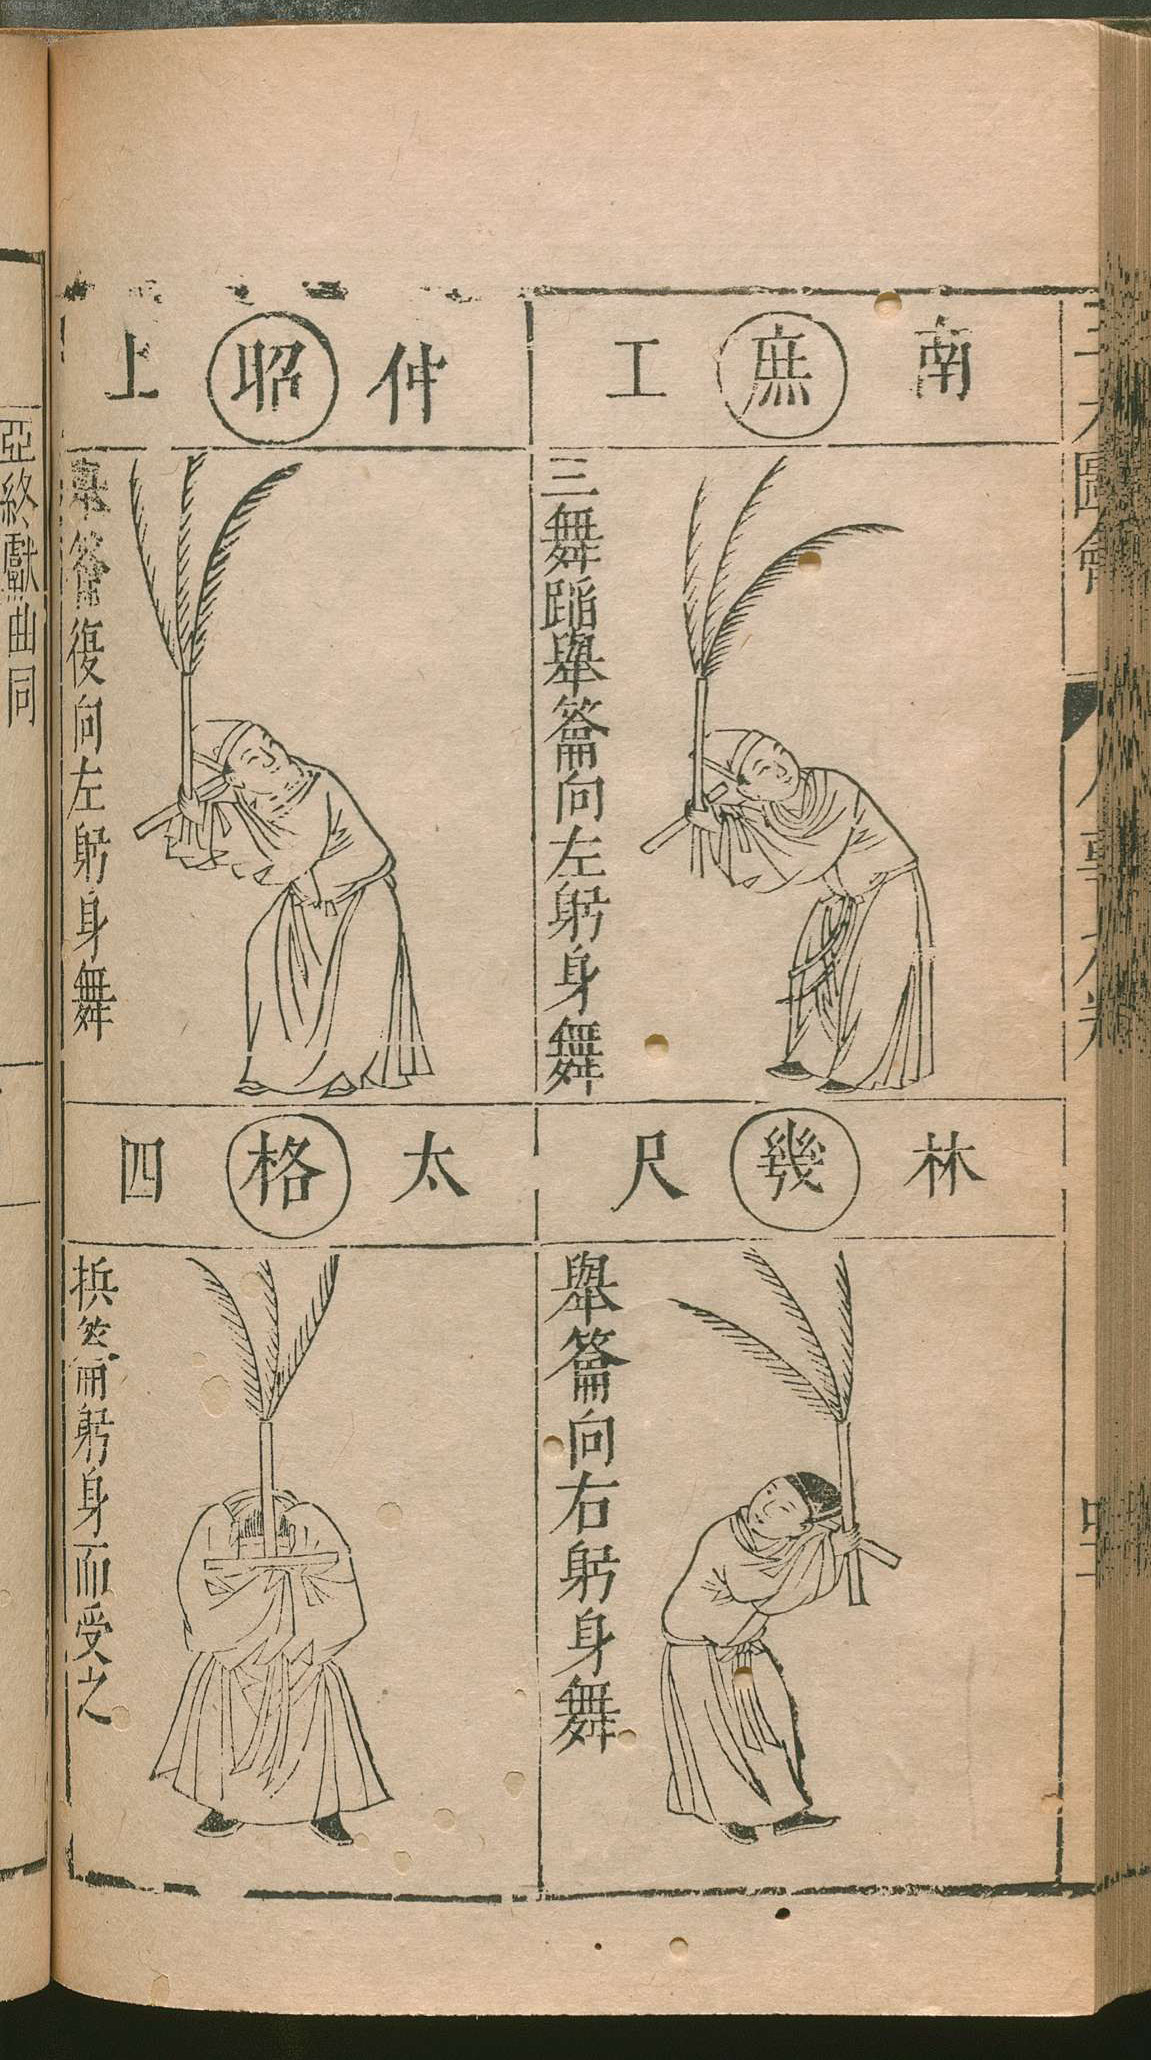 三才圖會
人事九卷
南 庶 工
三舞蹈舉籥向左躬身舞
林 幾 尺
舉籥向右躬身舞
仲 昭 上
舉籥復向左躬身舞
太 格 四
拱籥躬身而受之
亞終獻曲同